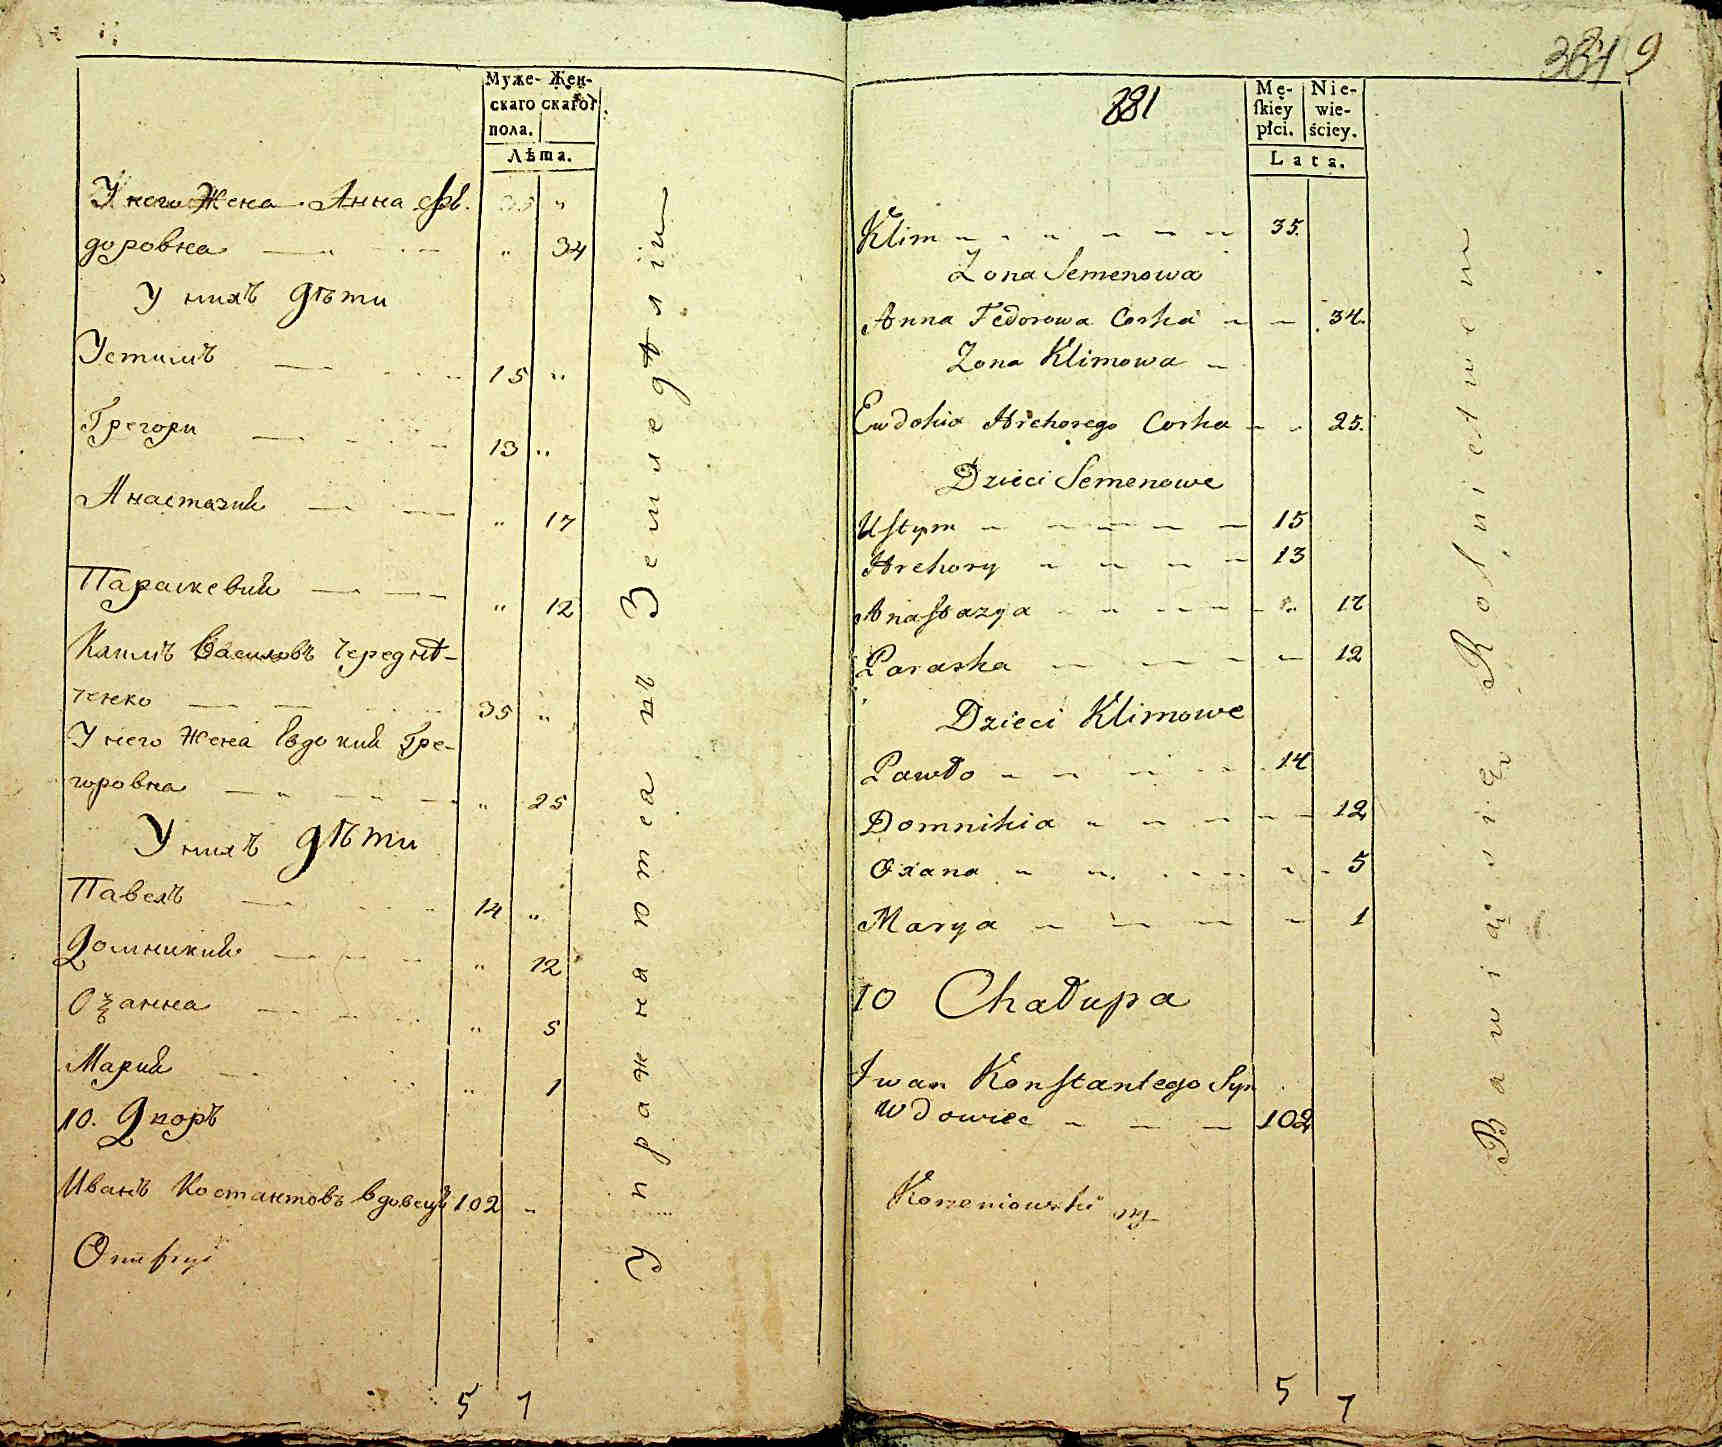 Муже- Жен-
скаго скаго
пола.
Лѣта.
У него Жена Анна Фѣ-
доровна " 34
У нихъ дѣти
Устимъ 15 "
Грегори 13 "
Анастазий " 17
Параскевий " 12
Климъ Василовъ Чередни-
ченко 35 "
У него Жена Евдокий Гре-
горовна " 25
У нихъ дѣти
Павелъ 14 "
Домникий " 12
Оѯанна " 5
Марий " 1
10. Дворъ
Иванъ Костантовъ вдовецъ 102 "
Упражнаютса въ Земледѣлiи
5 7
9
381
Mę- Nie-
skiey wie-
płci. ściey.
Lata.
Klim 35.
Żona Semenowa
Anna Fedorowa Corka 34.
Żona Klimowa
Ewdokia Hrehorego Corka 25.
Dzieci Semenowe
Ustym 15
Hrehory 13
Anastazya 17
Paraska 12
Dzieci Klimowe
Pawło 14
Domnikia 12
Oxana 5
Marya 1
10 Chałupa
Iwan Konstantego Syn
Wdowiec 102
Korzeniowski
Bawią się Rolnictwem
5 7